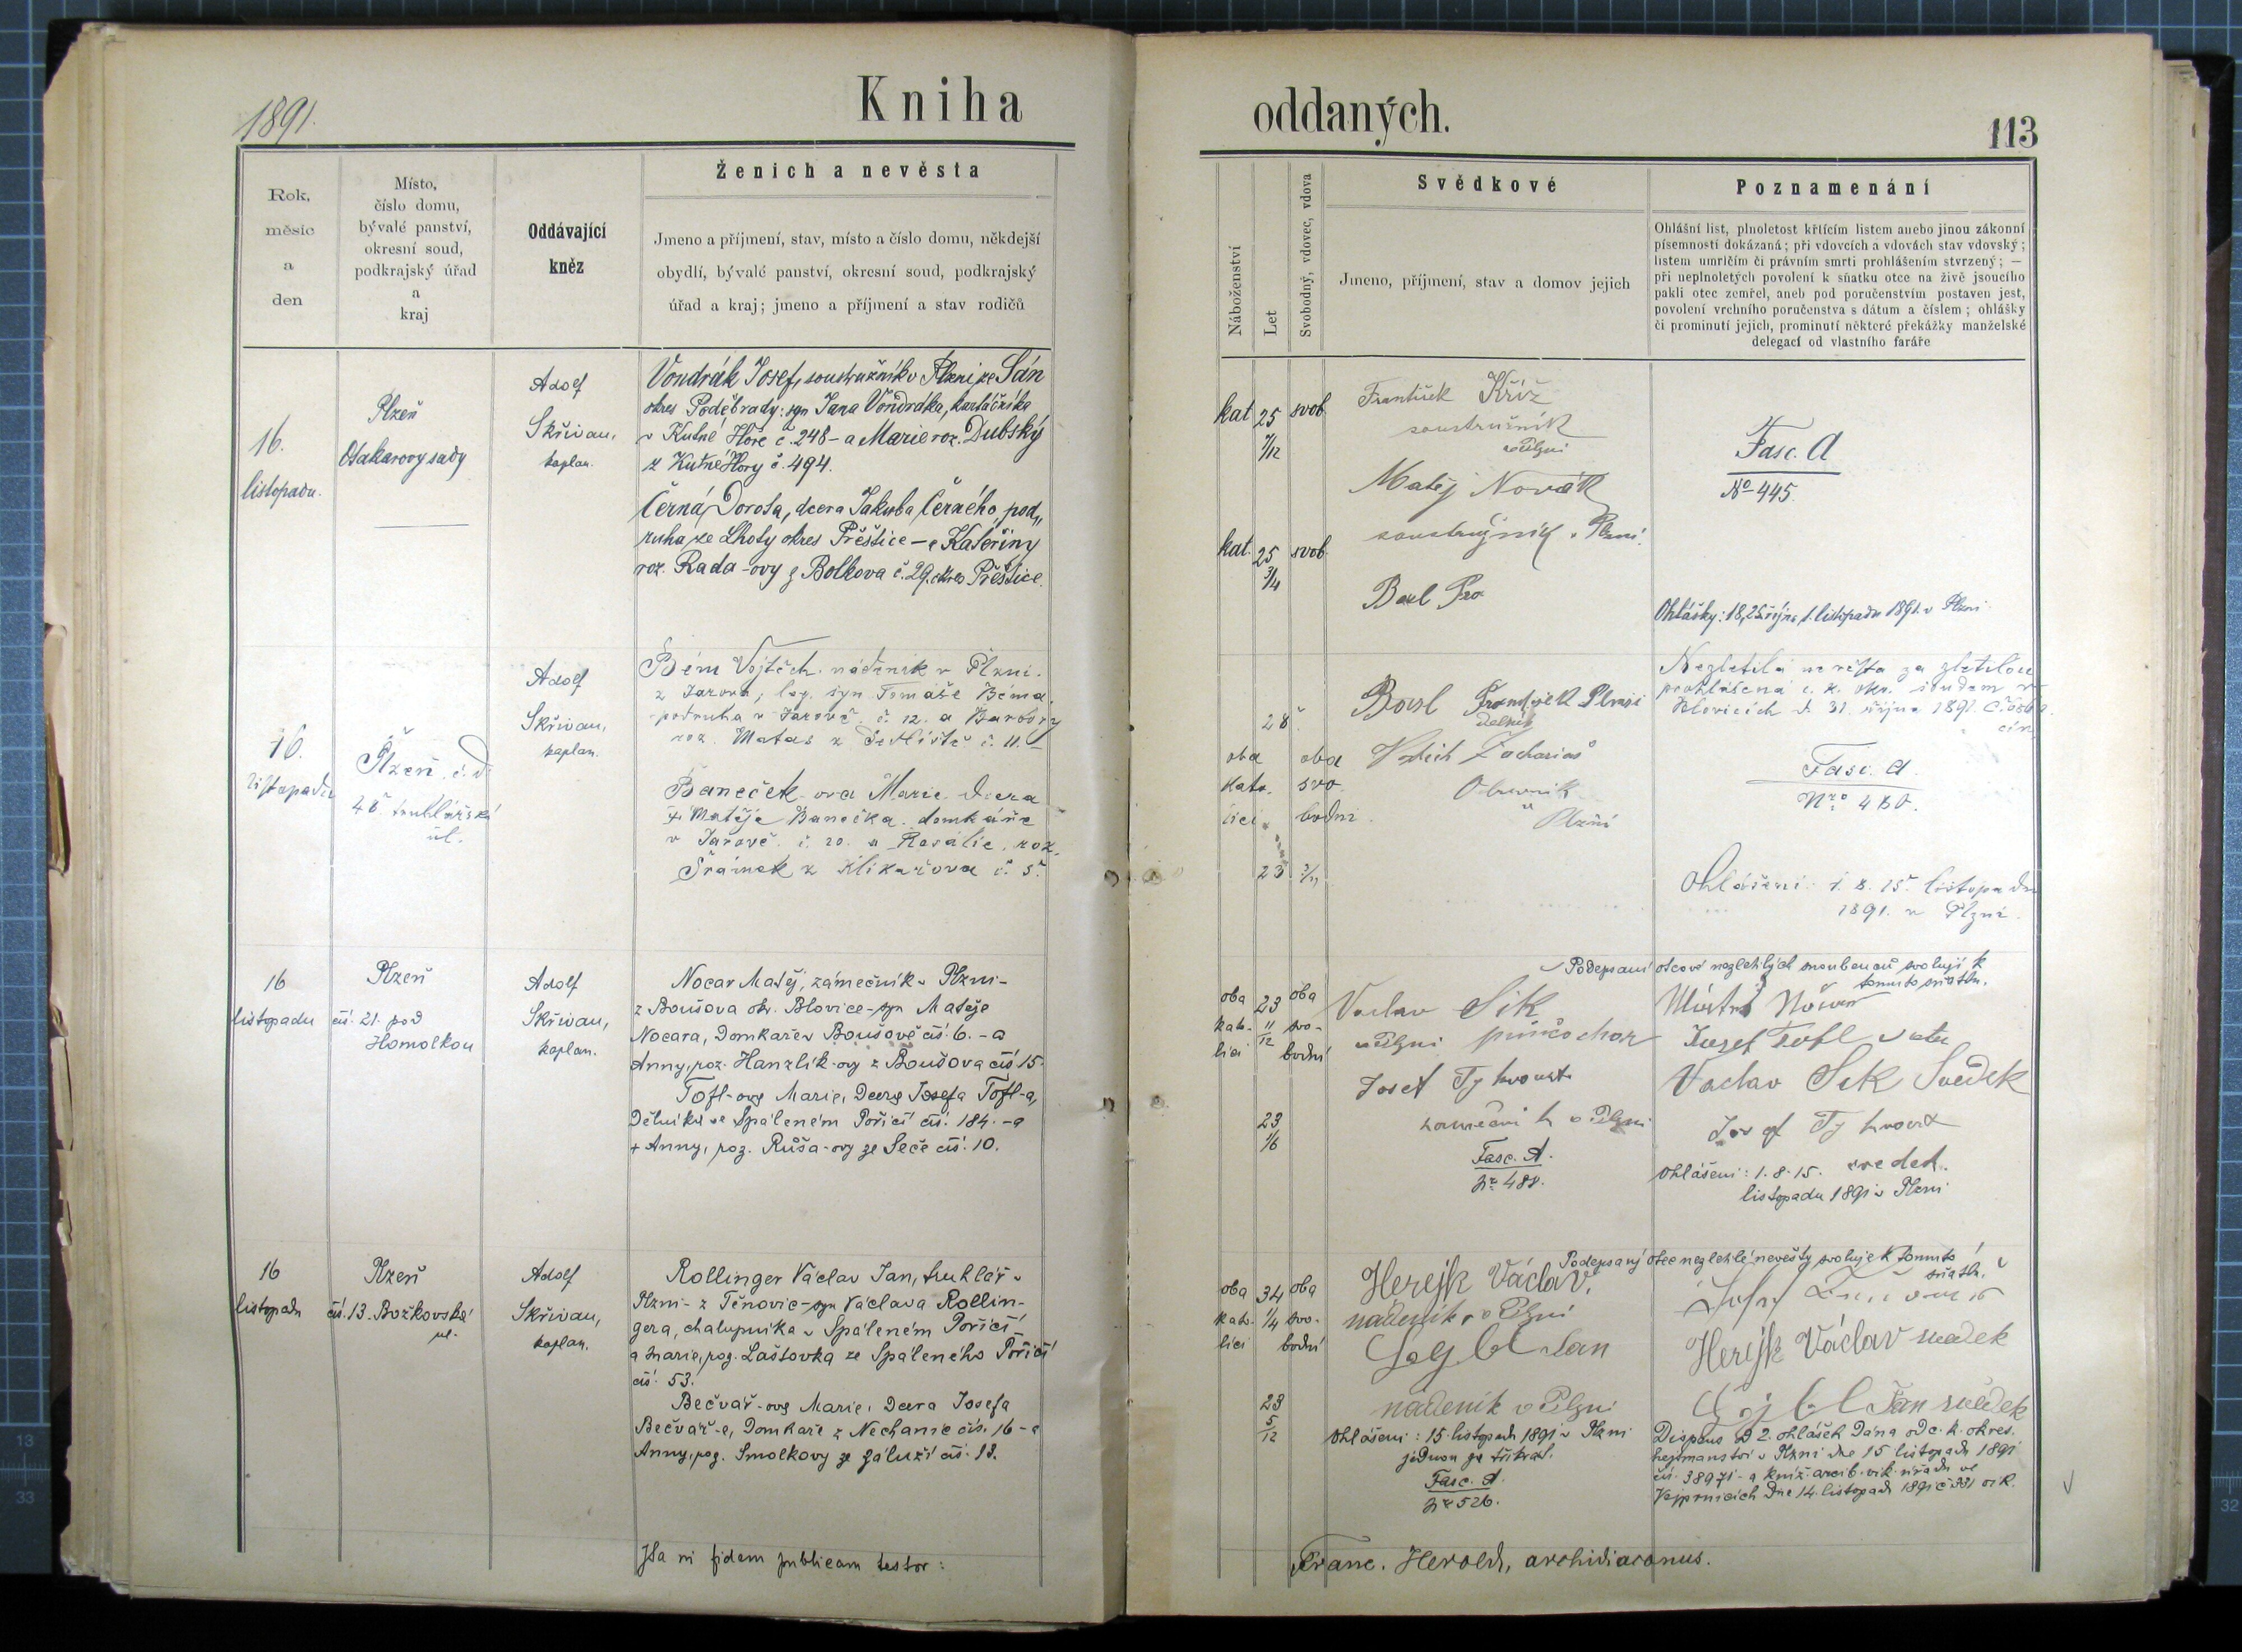 1891.
Kniha
Rok,
měsíc
a
den
Místo,
číslo domu,
bývalé panství,
okresní soud,
podkrajský úřad
a
kraj
Oddávající
kněz
Ženich a nevěsta
Jmeno a příjmení, stav, místo a číslo domu, někdejší
obydlí, bývalé panství, okresní soud, podkrajský
úřad a kraj; jmeno a příjmení a stav rodičů
16.
listopadu.
Plzeň
Otakarovy sady
Adolf
Skřivan,
kaplan.
Vondrák Josef, soustružník v Plzni, ze Sán
okres Poděbrady: syn Jana Vondráka, kartáčníka
v Kutné Hoře č. 248 - a Marie roz. Dubský
z Kutné Hory č. 494.
Černá, Dorota, dcera Jakuba Černého, pod„
ruha ze Lhoty okres Přeštice - a Kateřiny
roz. Rada-ovy z Bolkova č. 29. okres Přeštice.
16.
listopadu
Plzeň č. d.
48. truhlářská
ul.
Adolf
Skřivan,
kaplan.
Bém Vojtěch nádeník v Plzni.
z Jarova, leg. syn Tomáše Béma,
podruha v Jarově č. 12. a Barbory
roz. Matas z č. 11.
Baneček-ova Marie dcera
Matěje Banečka domkáře
v Jarově č. 20. a Rosalie, roz.
Šrámek z Klikařova č. 5.
16
listopadu
Plzeň
čís. 21. pod
Homolkou
Adolf
Skřivan,
kaplan.
Nocar Matěj, zámečník v Plzni -
z Boušova okr. Blovice - syn Matěje
Nocara, domkaře v Boušově čís. 6. - a
Anny, roz. Hanzlík-ovy z Boušova čís 15.
Tofl-ova Marie, dcera Josefa Tofl-a,
dělníka ve Spáleném Poříčí čís. 184. - a
+ Anny, roz. Růša-ovy ze Seče čís. 10.
16
listopadu
Plzeň
čís. 13. Božkovská
ul.
Adolf
Skřivan,
kaplan.
Rollinger Václav Jan, truhlář v
Plzni - z Těnovic - syn Václava Rollin-
gera, chalupníka v Spáleném Poříčí
a Marie, roz. Laštovka ze Spáleného Poříčí
čís. 53.
Bečvář-ova Marie, dcera Josefa
Bečvář-a, domkaře z Nechanic čís. 16 - a
Anny, roz. Smolkovy ze Zaluží čís. 13.
Ita in fidem publicam testor:
oddaných.
113
Náboženství
Let
Svobodný, vdovec, vdova
Svědkové
Jmeno, příjmení, stav a domov jejich
Poznamenání
Ohlášní list, plnoletost křtícím listem anebo jinou zákonní
písemností dokázaná; při vdovcích a vdovách stav vdovský;
listem umrlčím či právním smrti prohlášením stvrzený; —
při neplnoletých povolení k sňatku otce na živě jsoucího
pakli otec zemřel, aneb pod poručenstvím postaven jest,
povolení vrchního poručenstva s dátum a číslem; ohlášky
či prominutí jejich, prominutí některé překážky manželské
delegací od vlastního faráře
kat 25 svob
7/12
František Kříž
soustružník
v Plzni
Matěj Novák
soustružník v Plzni.
Fasc. A
No 445.
kat. 25 svob.
3/4
Ohlášky: 18, 25 října, 1. listopadu 1891. v Plzni.
28
oba oba
kato- svo-
lici bodni
23
František Plzni
dělník
Zacharias
v
Plzni
Nezletilá nevěsta za zletilou
prohlášena c. k. okr. soudem v
Blovicích d. 31. října 1891.
Fasc. A.
Nro 480.
Ohlášení: 1. 8. 15. listopadu
1891. v Plzni.
oba 23 oba
kato- 11/12 svo-
lici bodní
23
1/6
Vaclav Sik
v Plzni
Josef Tyhroust
v Plzni
Fasc. A.
Nr. 488.
Podepsaní otcové nezletilých snoubenců svolují k
tomuto sňatku.
Josef Tofl
Vaclav Sik Svědek
Josef Tyhroust
svedek.
Ohlášeni: 1. 8. 15.
listopadu 1891 v Plzni
oba 34 oba
kato- 1/4 svo-
lici bodní
23
5/12
Herejk Václav,
nádeník v Plzni
Jan
nádeník v Plzni
Ohlášeni: 15. listopadu 1891 v Plzni
jednou za třikrát.
Fasc. A.
Nr 526.
Podepsaný otec nezletilé nevěsty svoluje k tomuto
sňatku.
Herejk Václav svědek
Jan svědek
Dispens od 2. ohlášek dána od c. k. okres.
hejtmanství v Plzni dne 15 listopadu 1891
čís. 38971 - a kníž. arcib. vik. úřadu ve
Vejprnicích dne 14. listopadu 1891 č 331 vik.
Franc. Herold, archidiaconus.